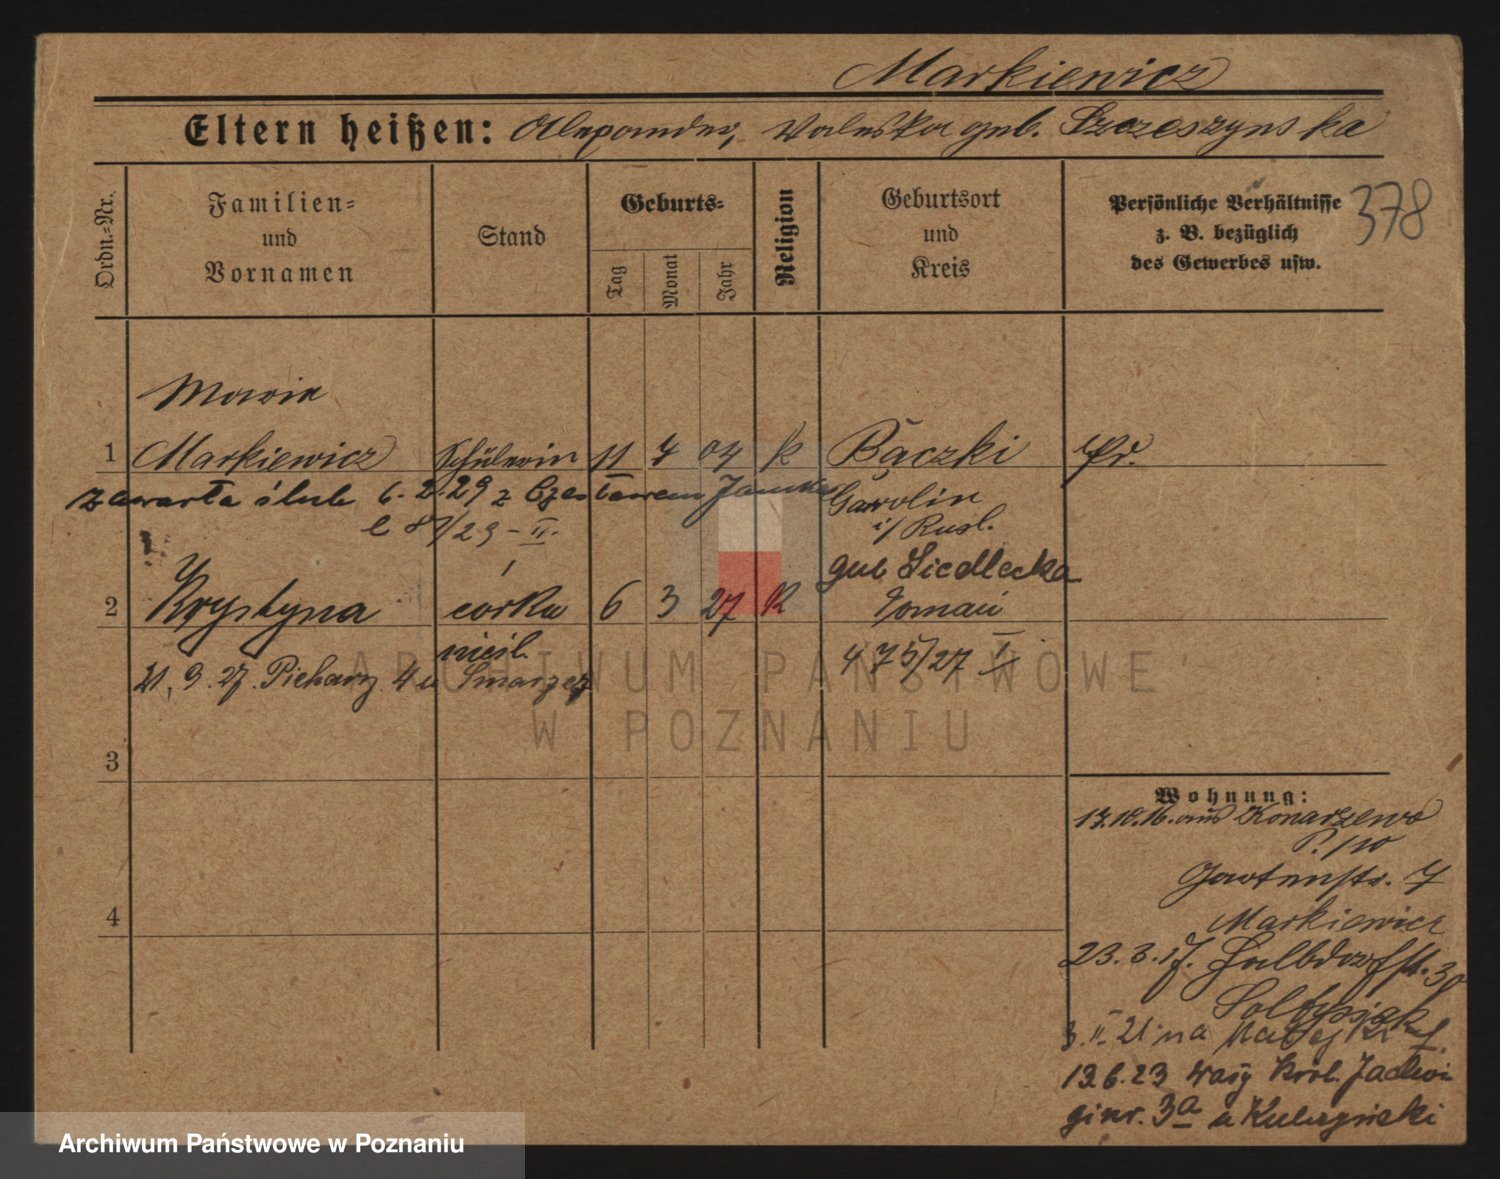 Markiewicz
Eltern heißen: Alexander, Valeska geb. Szczeszynska
378
Ordn.-Nr.
Familien- und Vornamen
Stand
Geburts-
Tag
Monat
Jahr
Religion
Geburtsort und Kreis
Persönliche Verhältnisse z. B. bezüglich des Gewerbes usw.
Maria
1 Markiewicz Schülerin 11 7 04 k Bączki Pr.
zawarła ślub 6.2.29 z Czesławem
Garwolin
i/ Rusl.
gub Siedlecka
2 Krystyna córka 6 3 27 K
nieśl.
475/27 I
21.9.27. Piekary 4 u
3
4
Wohnung:
17.10.16. aus Konarzewo
Gartenstr. 7
Markiewicz
23.3.17. Halbdorfstr. 30
3.II.21 na Matejki
13.6.23 Wały Król. Jadwi
gi nr. 3a u
ARCHIWUM PAŃSTWOWE
W POZNANIU
Archiwum Państwowe w Poznaniu